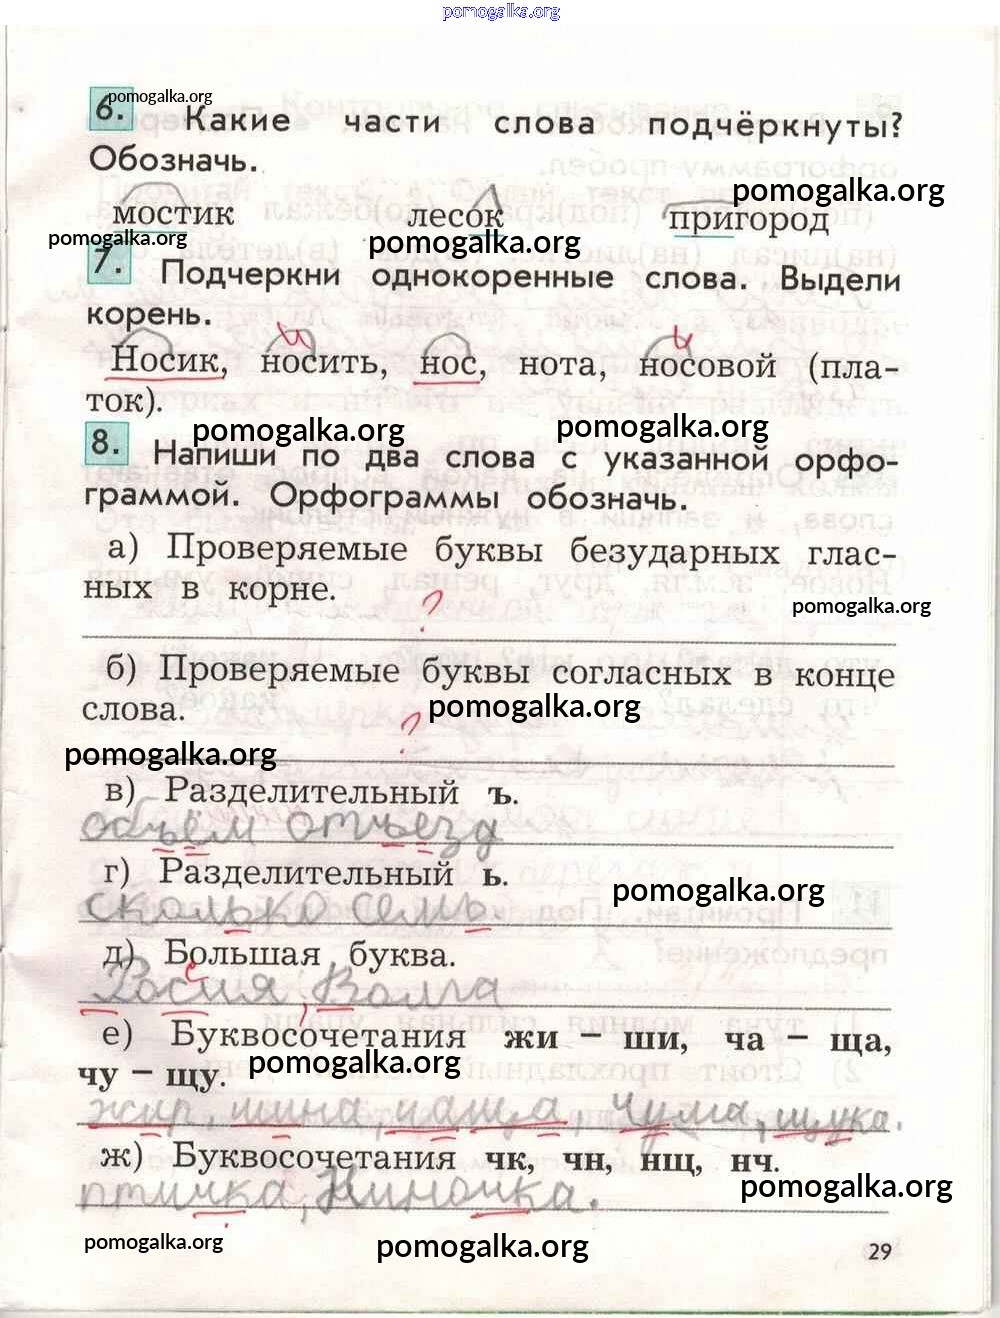 pomogalka.org
6. Какие части слова подчёркнуты?
pomogalka.org
Обозначь.
pomogalka.org
мостик лесок пригород
pomogalka.org
pomogalka.org
7. Подчеркни однокоренные слова. Выдели
корень.
и и
Носик, носить, нос, нота, носовой (пла-
ток).
pomogalka.org
pomogalka.org
8. Напиши по два слова с указанной орфо-
граммой. Орфограммы обозначь.
а) Проверяемые буквы безударных глас-
ных в корне.
?
pomogalka.org
б) Проверяемые буквы согласных в конце
слова.
pomogalka.org
?
pomogalka.org
в) Разделительный ъ.
объём отъезд
г) Разделительный ь.
pomogalka.org
сколько семь.
д) Большая буква.
с
Росия, Волга
е) Буквосочетания жи – ши, ча – ща,
чу – щу.
pomogalka.org
жир, шина, чаща, чума, щука.
ж) Буквосочетания чк, чн, нщ, нч.
pomogalka.org
птичка, Ниночка.
pomogalka.org
pomogalka.org
29